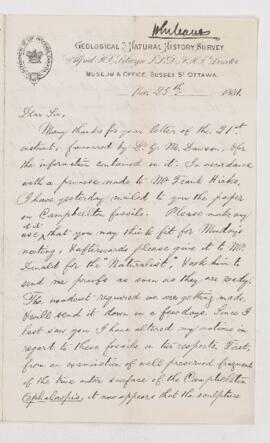 Whiteaves
GEOLOGICAL & NATURAL HISTORY SURVEY
Alfred R.C. Selwyn L.L.D. F.R.S. Director
MUSEUM & OFFICE, SUSSEX ST OTTAWA.
Nov. 25th 1881.
Dear Sir,
Many thanks for your letter of the 21st
instant, favoured by Dr G. M. Dawson, & for
the information contained in it. In accordance
with a promise made to Mr Frank Hicks,
I have yesterday mailed to you the paper
on Campbellton fossils. Please make any
use of it that you may think fit for Monday's
meeting, & afterwards please give it to Mr
for the "Naturalist", & ask him to
send me proofs as soon as they are ready.
The woodcut required we are getting made,
& will send it down in a few days. Since I
last saw you I have altered my notions in
regard to these fossils in two respects. First,
from an examination of well preserved fragments
of the true outer surface of the Campbellton
Cephalaspis, it now appears that the sculpture